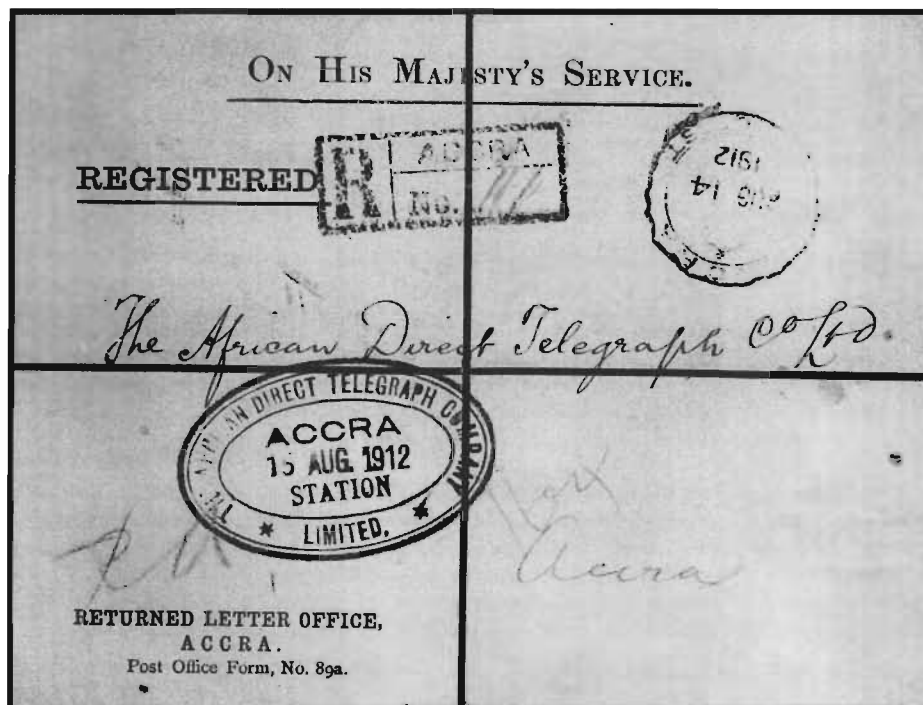 ON HIS MAJESTY'S SERVICE.
REGISTERED
R
ACCRA
No.
1912
AUG 14
The African Direct Telegraph Co Ltd.
THE AFRICAN DIRECT TELEGRAPH COMPANY
ACCRA
15 AUG. 1912
STATION
LIMITED.
Accra
RETURNED LETTER OFFICE,
ACCRA.
Post Office Form, No. 89a.